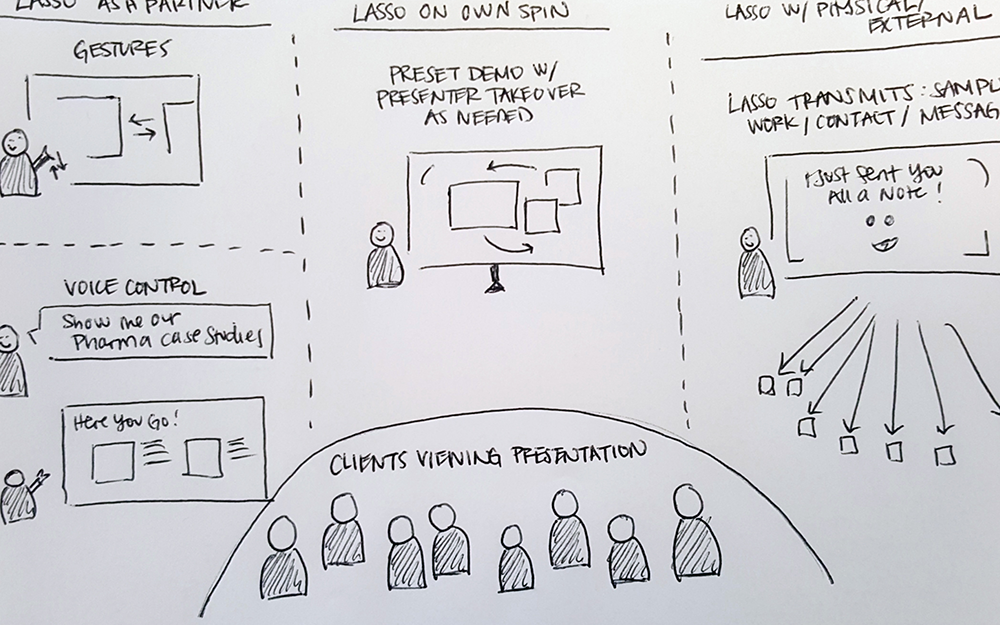 LASSO AS A PARTNER
GESTURES
VOICE CONTROL
Show me our
Pharma case studies
Here you Go!
LASSO ON OWN SPIN
PRESET DEMO W/
PRESENTER TAKEOVER
AS NEEDED
LASSO W/ PHYSICAL/
EXTERNAL
LASSO TRANSMITS: SAMPL
WORK/CONTACT/MESSAG
I Just sent you
All a Note!
CLIENTS VIEWING PRESENTATION